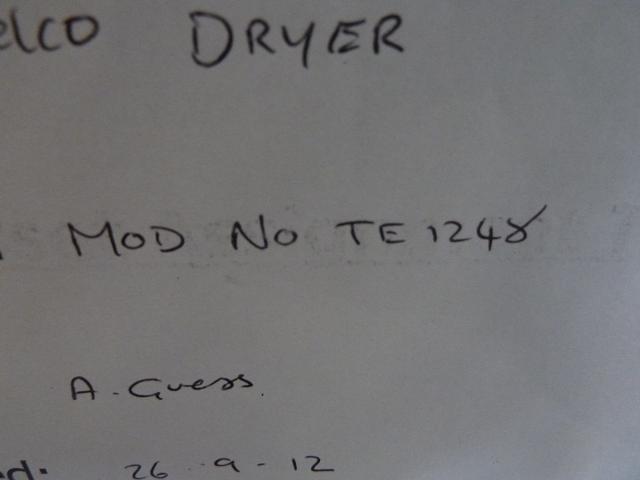 elco DRYER
MOD No TE1248
A. Guess.
ed: 26.9-12